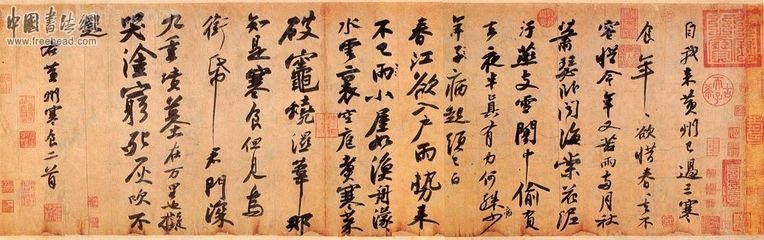 中国书法网
www.freehead.com
自我來黄州已過三寒
食年〻欲惜春〻去不
容惜今年又苦雨兩月秋
蕭瑟卧聞海棠花泥
汙燕支雪闇中偷負
去夜半真有力何殊病少
年子病起須已白
春江欲入户雨勢來
不已雨小屋如漁舟濛〻
水雲裏空庖煮寒菜
破竈燒濕葦那
知是寒食但見烏
銜帋君門深
九重墳墓在万里也擬
哭塗窮死灰吹不
起
右黄州寒食二首